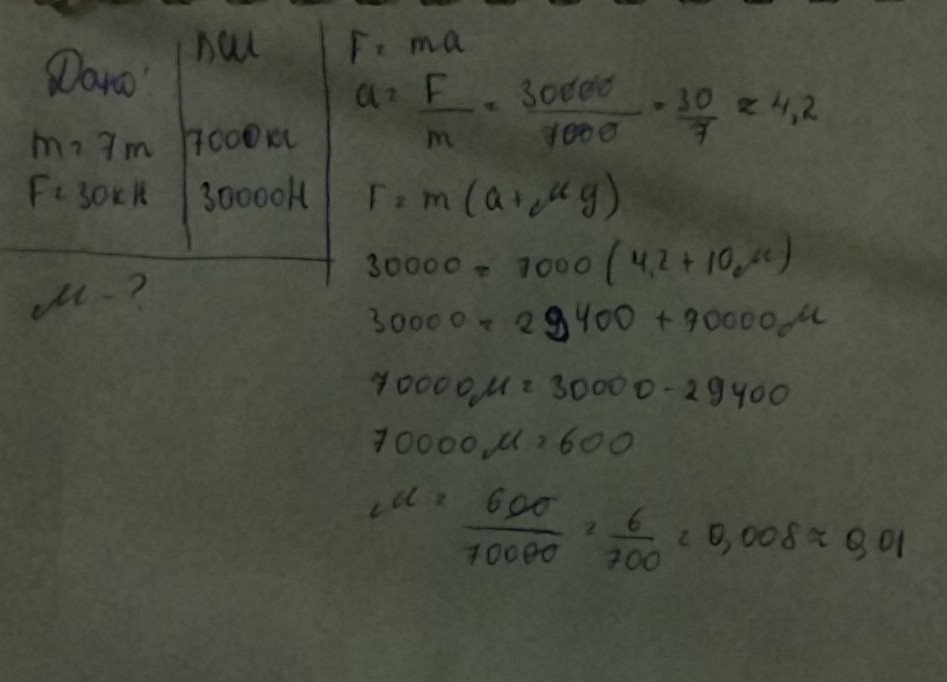 Дано:
m = 7т
F = 30кН
μ - ?
7000кг
30000Н
F = ma
a = F/m = 30000/7000 = 30/7 ≈ 4,2
F = m(a + μg)
30000 = 7000(4,2 + 10μ)
30000 = 29400 + 70000μ
70000μ = 30000 - 29400
70000μ = 600
μ = 600/70000 = 6/700 = 0,008 ≈ 0,01